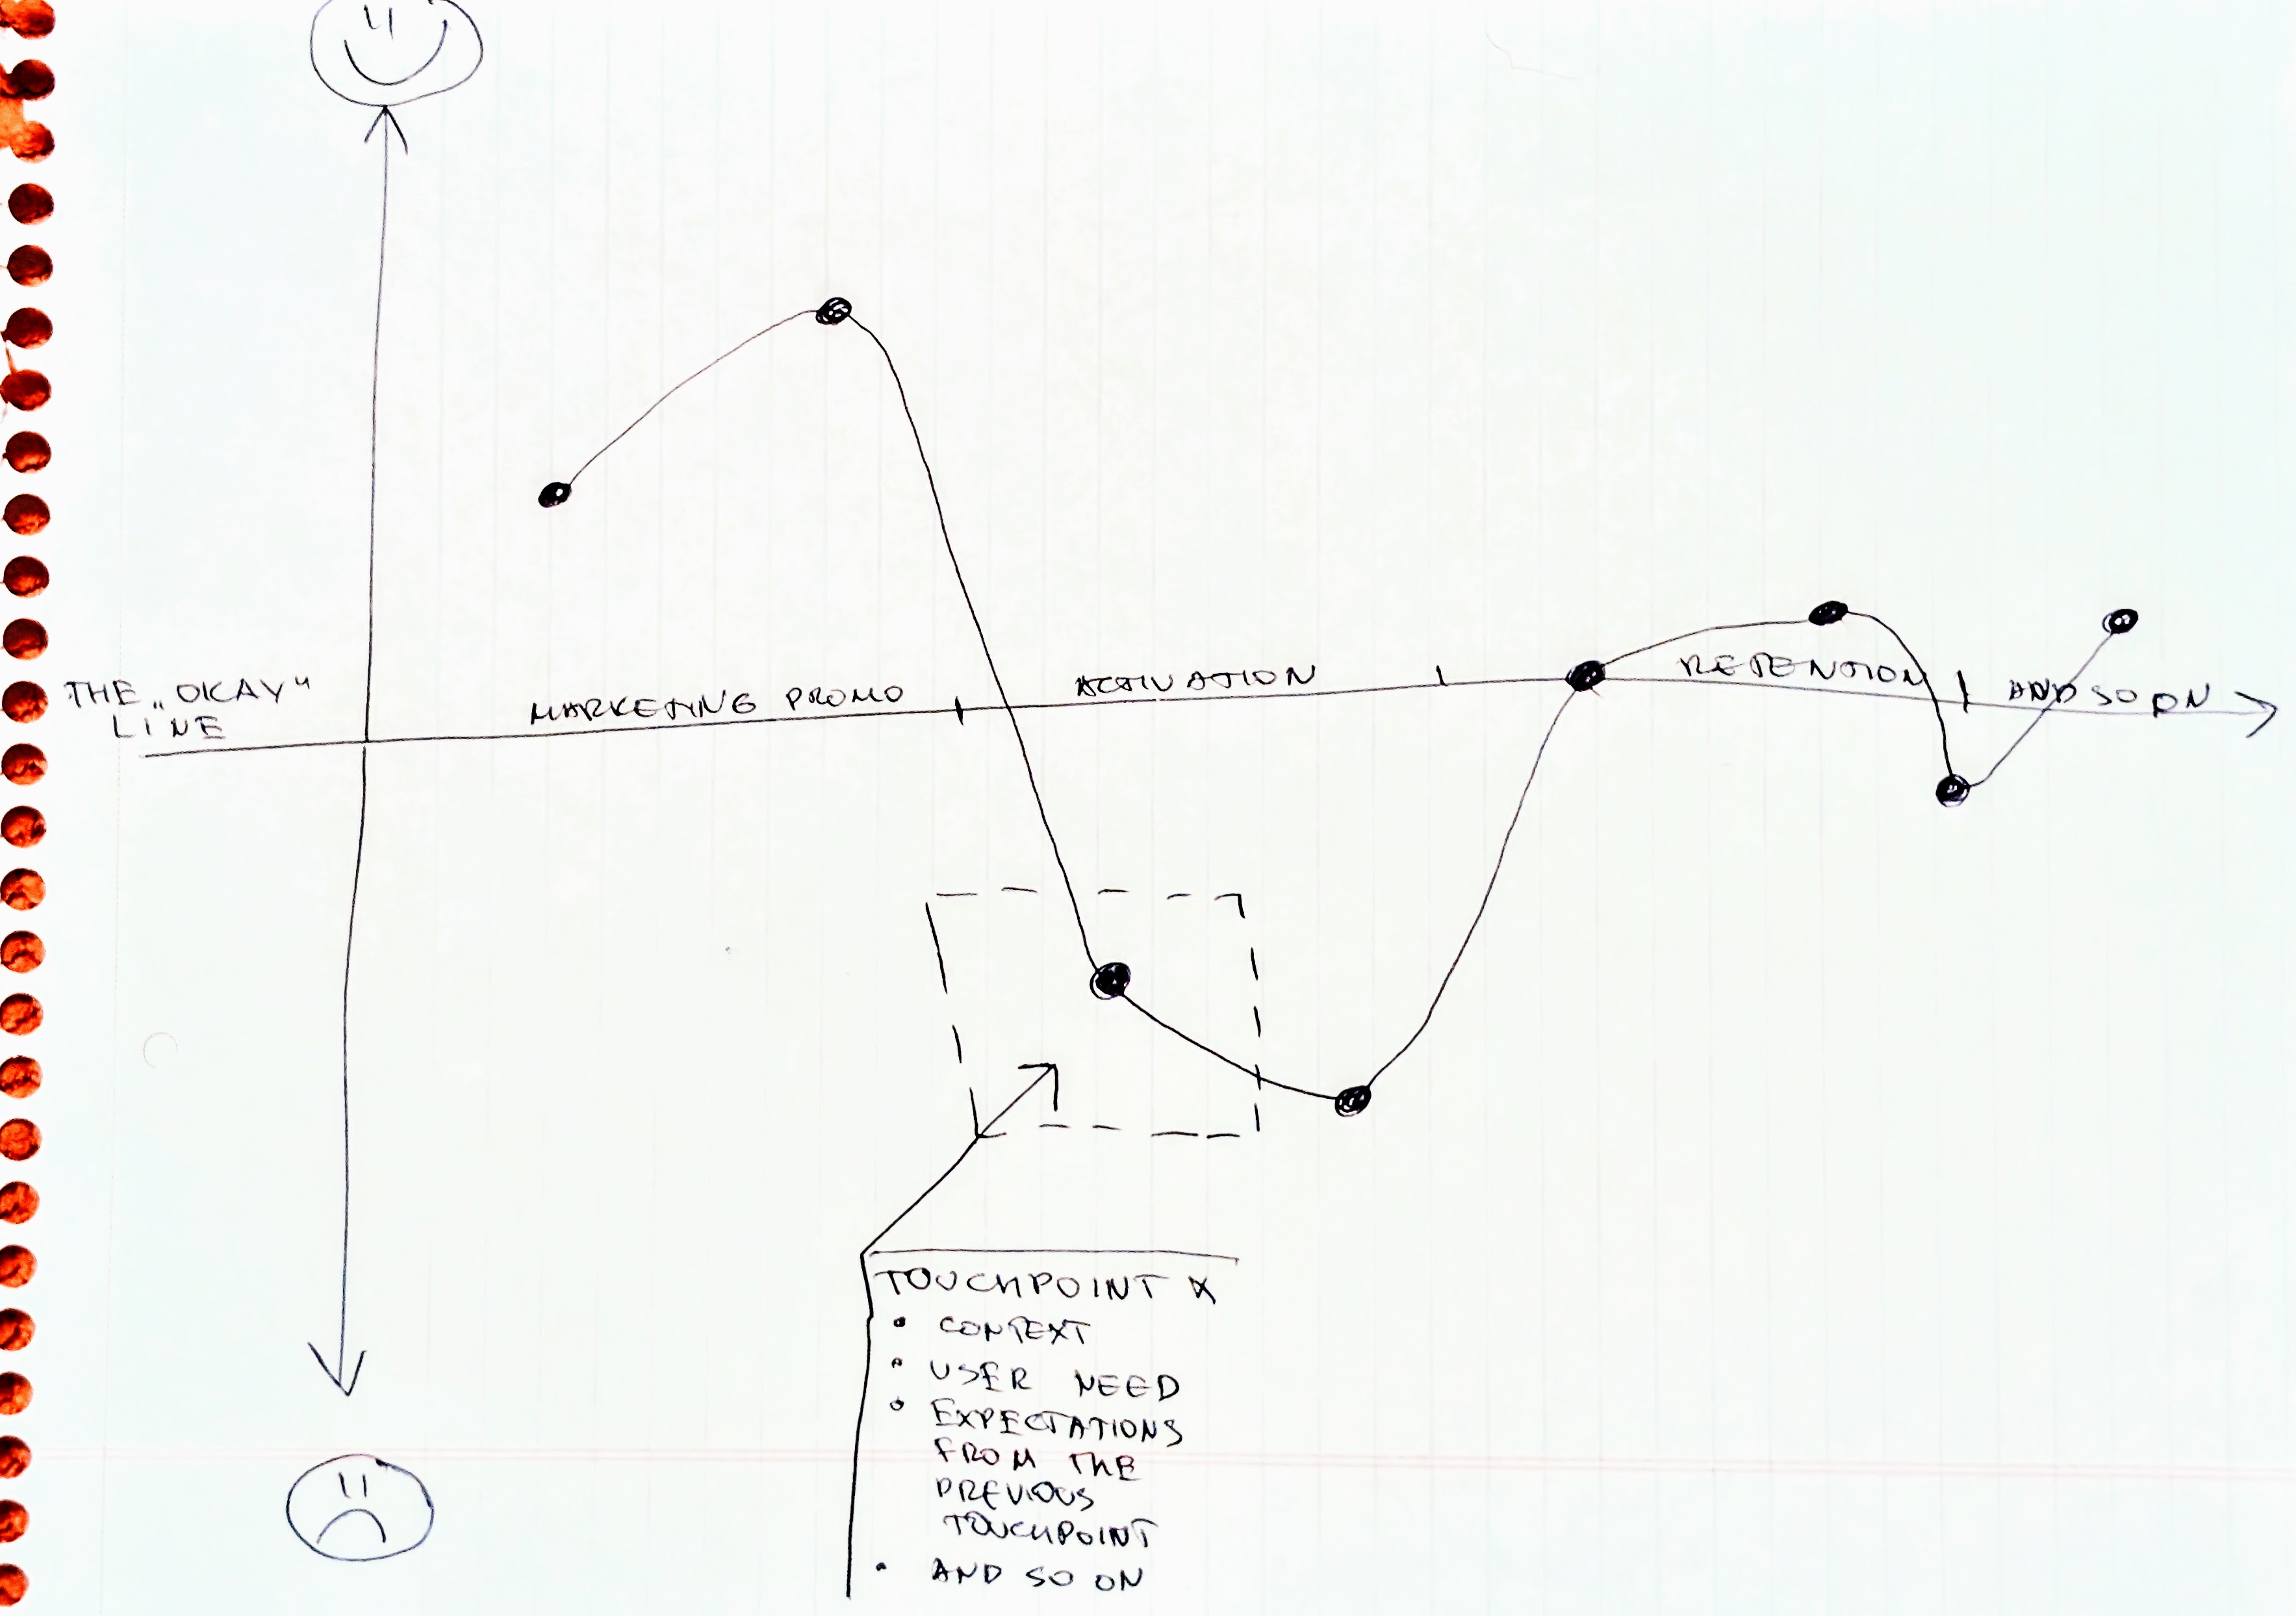 THE „OKAY"
LINE
MARKETING PROMO
ACTIVATION
RETENTION
AND SO ON
TOUCHPOINT X
• CONTEXT
• USER NEED
• EXPECTATIONS
FROM THE
PREVIOUS
TOUCHPOINT
• AND SO ON